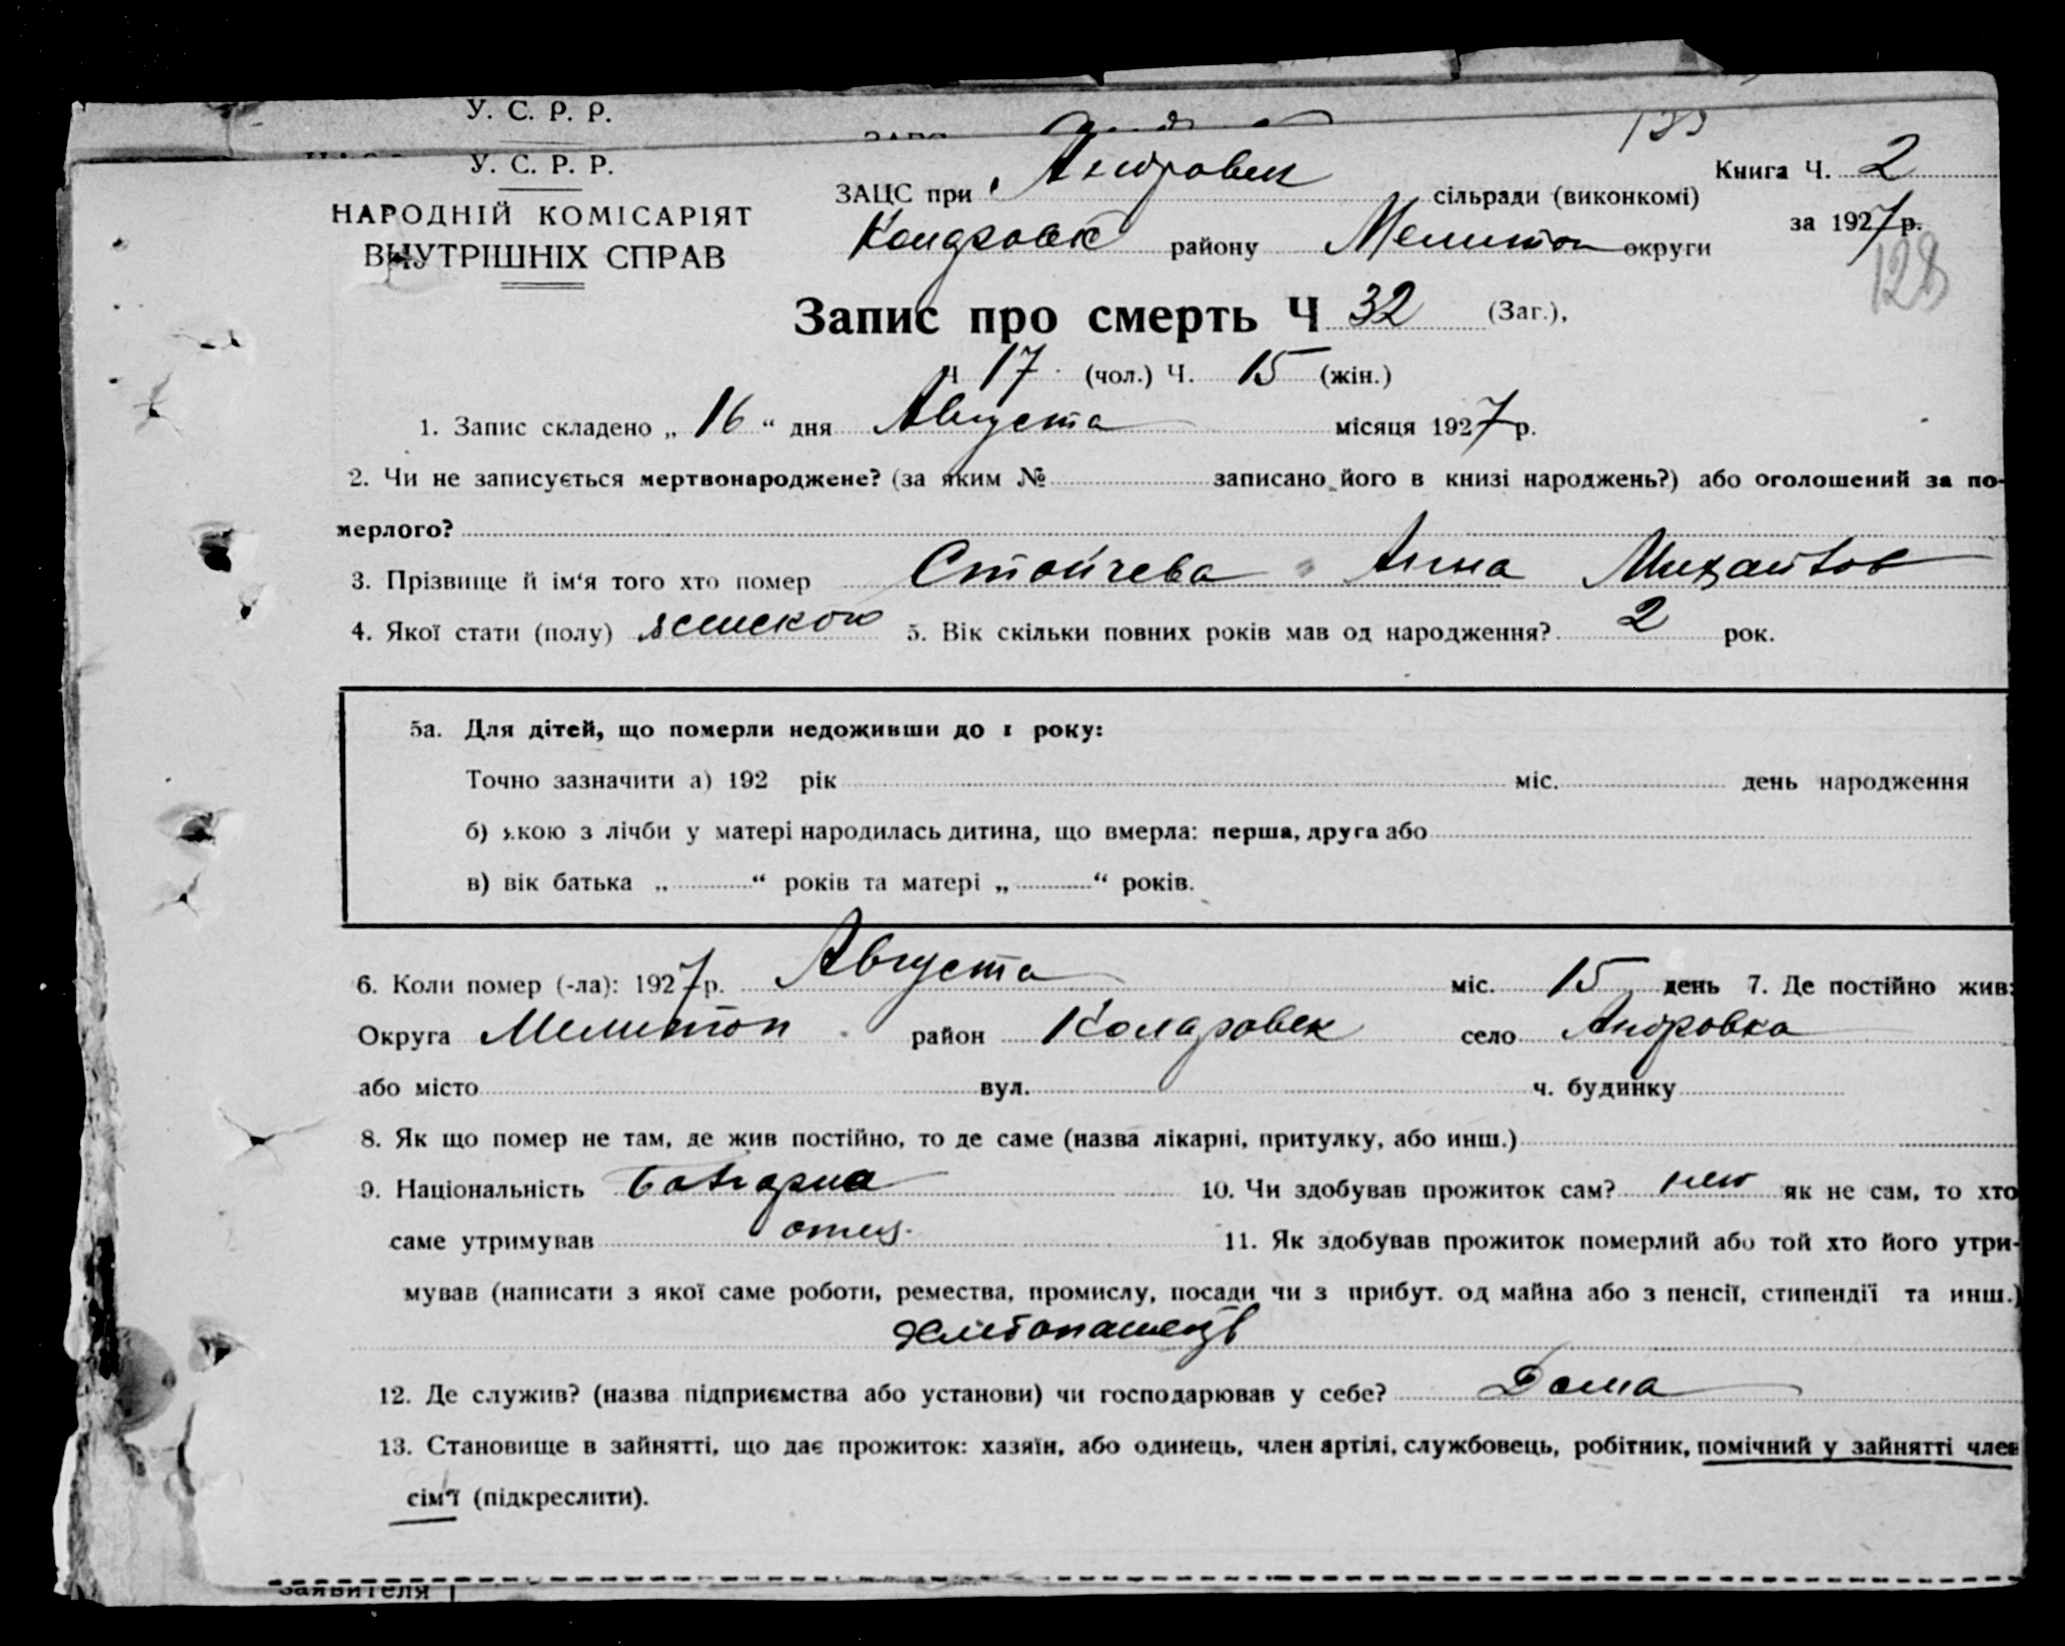 У. С. Р. Р.
У. С. Р. Р.
НАРОДНІЙ КОМІСАРІЯТ
ВНУТРІШНІХ СПРАВ
Книга Ч. 2
за 1927 р.
128
ЗАЦС при Андровск сільради (виконкомі)
Коларовск району Мелитоп округи
Запис про смерть Ч 32 (Заг.),
Ч 17 (чол.) Ч. 15 (жін.)
1. Запис складено „ 16 “ дня Августа місяця 1927 р.
2. Чи не записується мертвонароджене? (за яким № записано його в книзі народжень?) або оголошений за по-
мерлого?
3. Прізвище й ім‘я того хто помер Стойчева Анна Михайлов
4. Якої стати (полу) женскою 5. Вік скільки повних років мав од народження? 2 рок.
5а. Для дітей, що померли недоживши до 1 року:
Точно зазначити а) 192 рік міс. день народження
б) якою з лічби у матері народилась дитина, що вмерла: перша, друга або
в) вік батька „ “ років та матері „ “ років.
6. Коли помер (-ла): 1927 р. Августа міс. 15 день 7. Де постійно жив:
Округа Мелитоп район Коларовск село Андровка
або місто вул. ч. будинку
8. Як що помер не там, де жив постійно, то де саме (назва лікарні, притулку, або инш.)
9. Національність болгарка 10. Чи здобував прожиток сам? нет як не сам, то хто
саме утримував отец. 11. Як здобував прожиток померлий або той хто його утри-
мував (написати з якої саме роботи, ремества, промислу, посади чи з прибут. од майна або з пенсії, стипендії та инш.)
хлебопашеств
12. Де служив? (назва підприємства або установи) чи господарював у себе? Дома
13. Становище в зайнятті, що дає прожиток: хазяїн, або одинець, член артілі, службовець, робітник, помічний у зайнятті член
сім'ї (підкреслити).
заявителя